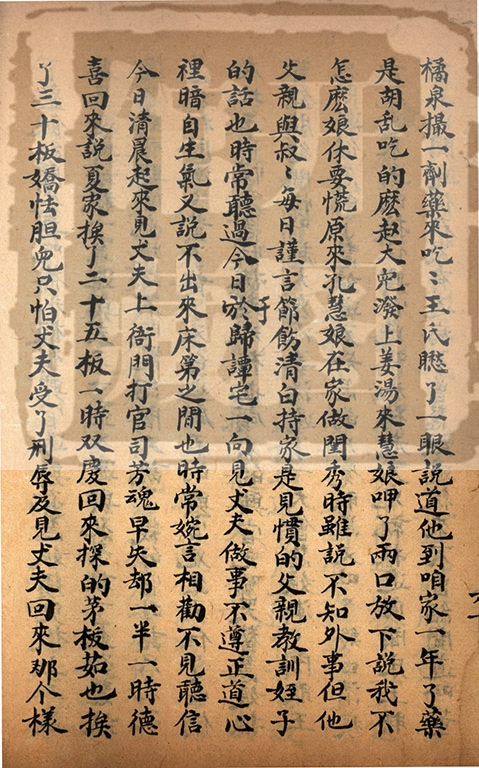 橘泉撮一劑藥來吃〻王氏愍了一眼說道他到咱家一年了藥
是胡乱吃的麽赵大兒潑上姜湯來慧娘呷了兩口放下說我不
怎麽娘休要慌原來孔慧娘在家做閨秀時雖說不知外事但他
父親與叔〻每日謹言節飭清白持家是見慣的父親教訓姪子
的話也時常聽過今日於于歸譚宅一向見丈夫做事不遵正道心
裡暗自生氣又說不出來床笫之間也時常婉言相勸不見聽信
今日清晨起來見丈夫上衙門打官司芳魂早失却一半一時德
喜回來說夏家挨了二十五板一時双慶回來探的茅拔茹也挨
了三十板嬌怯胆兒只怕丈夫受了刑辱及見丈夫回來那个樣